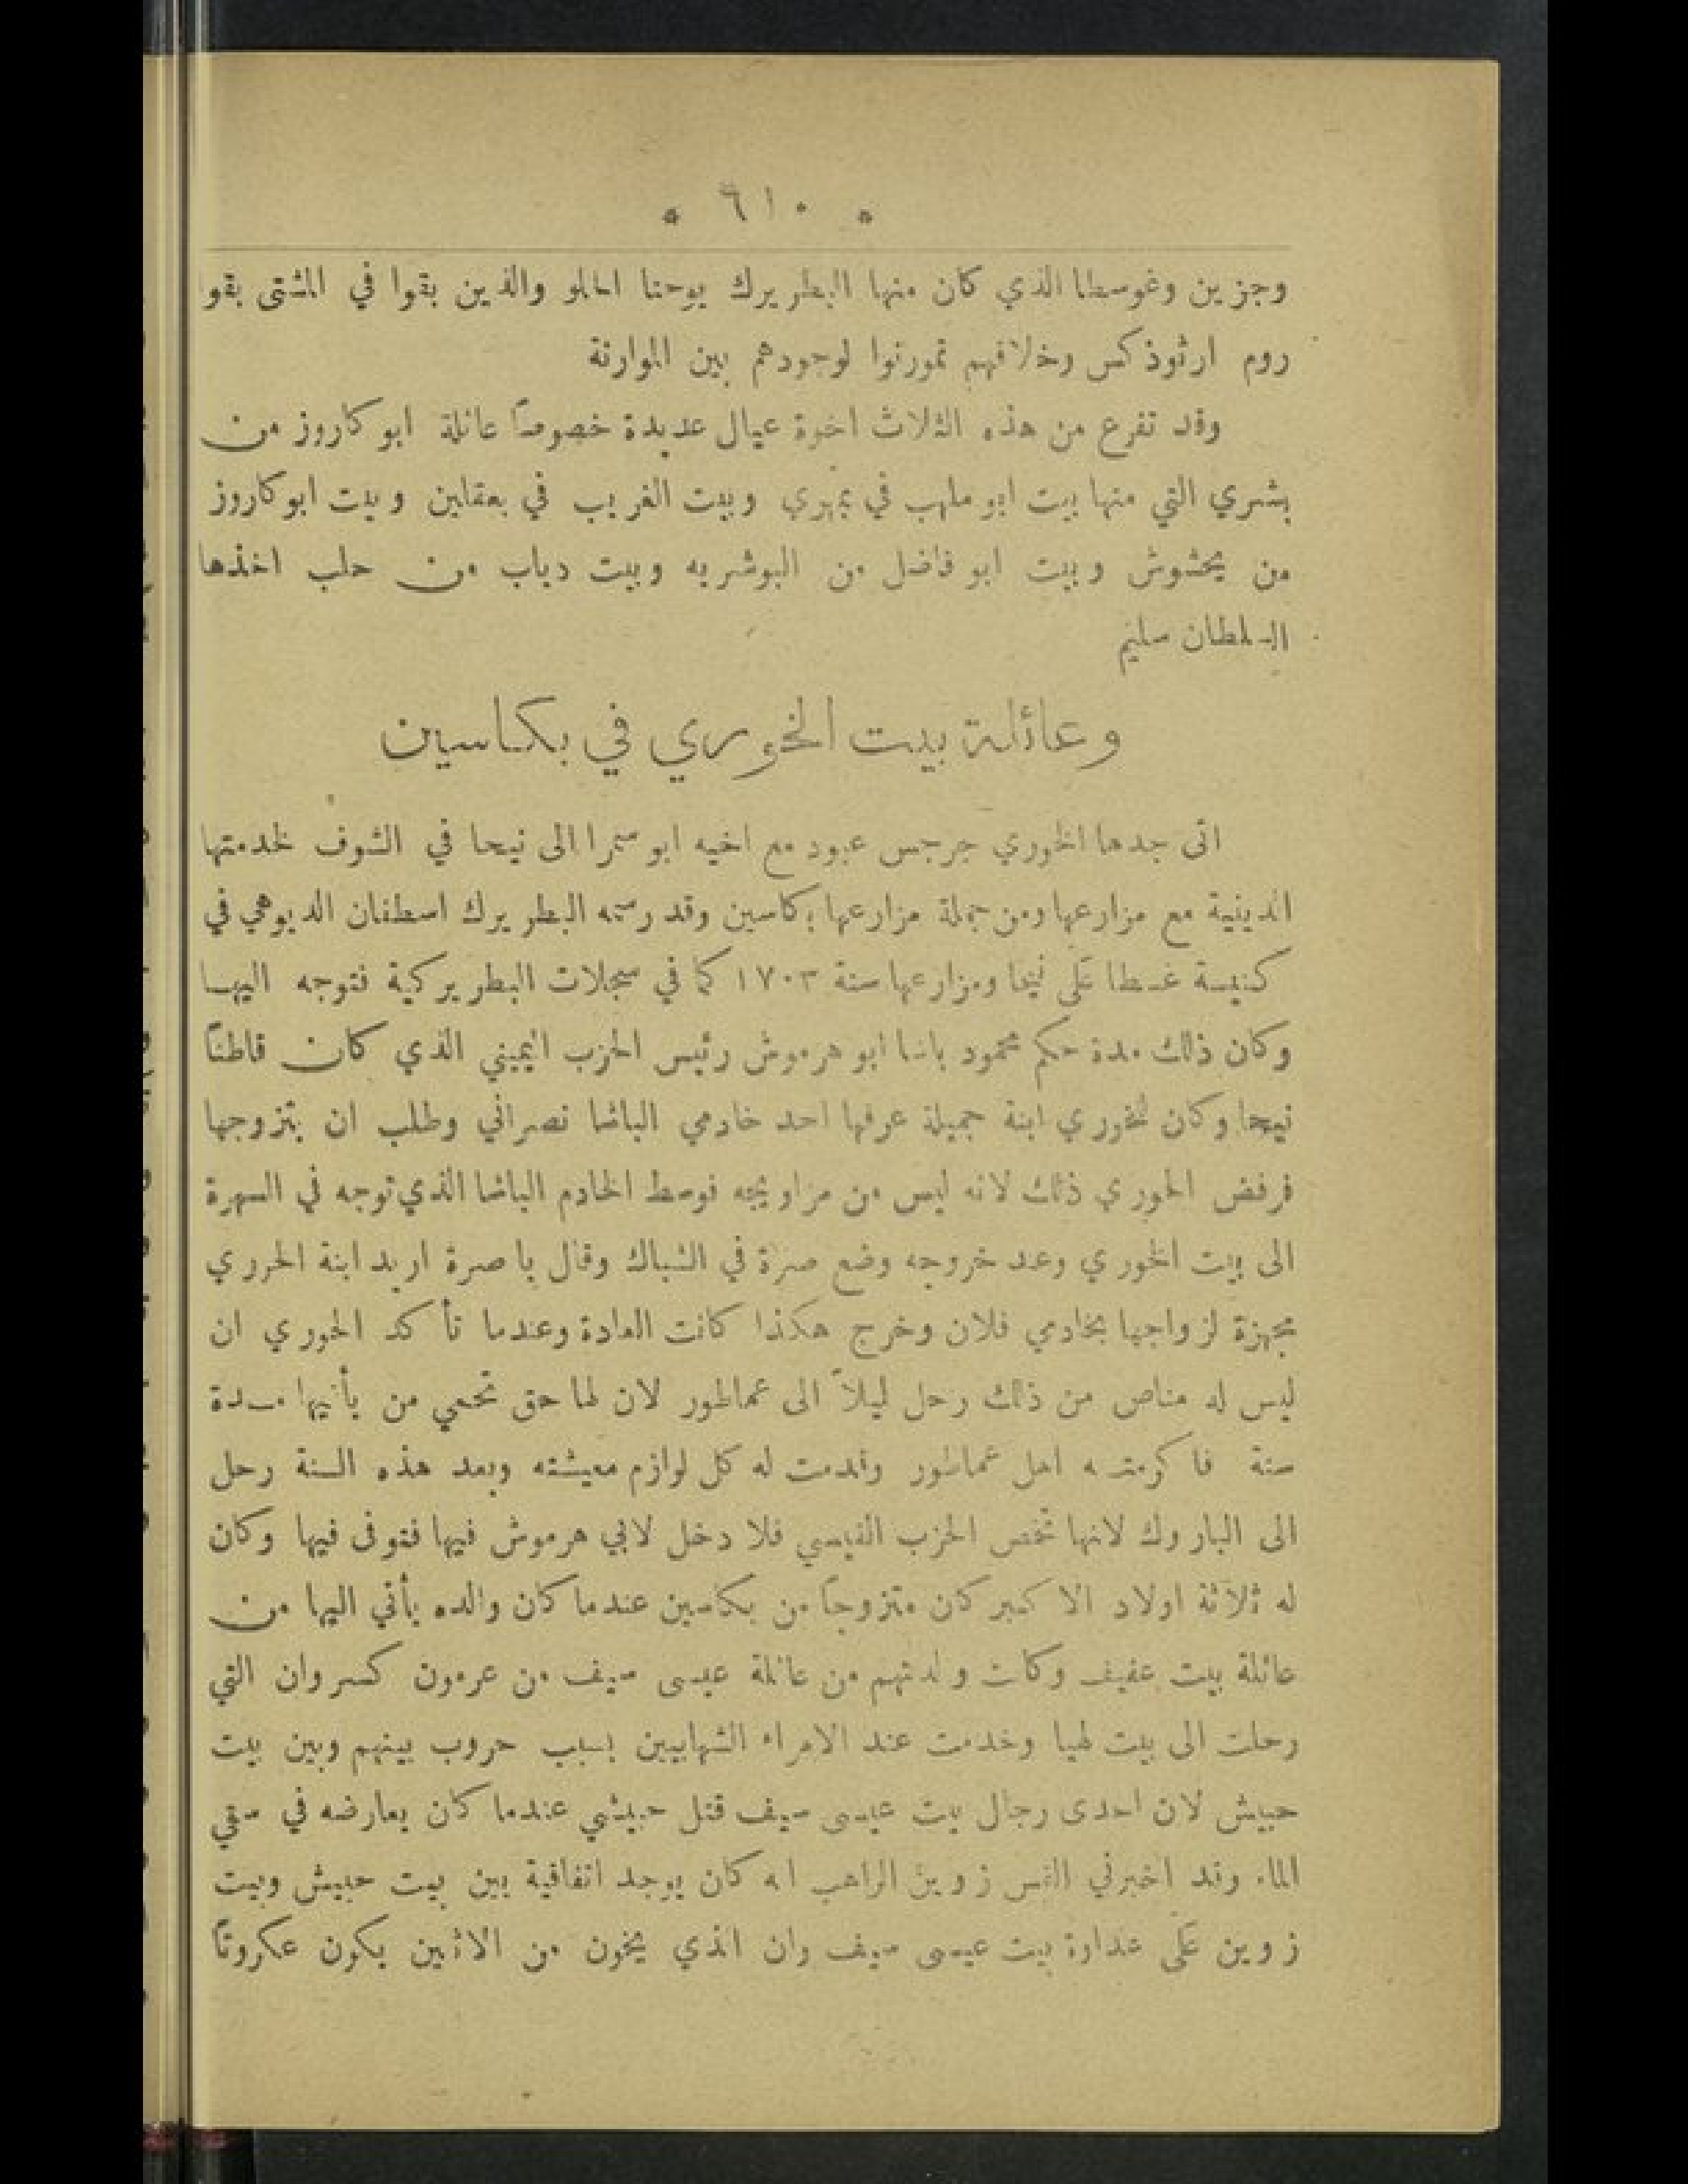 * ٦١٠ *
وجزين وغوسطا الذي كان منها البطريرك يوحنا الحلو والذين بقوا في المشتى بقوا
روم ارثوذكس وخلافهم تمورنوا لوجودهم بين الموارنة
وقد تفرع من هذه الثلاث اخوة عيال عديدة خصوصاً عائلة ابو كاروز من
بشري التي منها بيت ابو ملهب في بمهري وبيت الغريب في بعقلين وبيت ابو كاروز
من يحشوش وبيت ابو فاضل من البوشريه وبيت دياب من حلب اخذها
السلطان سليم
وعائلة بيت الخوري في بكاسين
اتى جدها الخوري جرجس عبود مع اخيه ابو سمرا الى نيحا في الشوف لخدمتها
الدينية مع مزارعها ومن جملة مزارعها بكاسين وقد رسمه البطريرك اسطفان الديوهي في
كنيسة غسطا على نيحا ومزارعها سنة ١٧٠٣ كما في سجلات البطريركية فتوجه اليها
وكان ذلك مدة حكم محمود باشا ابو هرموش رئيس الحزب اليميني الذي كان قاطناً
نيحا وكان للخوري ابنة جميلة عرفها احد خادمي الباشا نصراني وطلب ان يتزوجها
فرفض الخوري ذلك لانه ليس من مزاويجه فوسط الخادم الباشا الذي توجه في السهرة
الى بيت الخوري وعند خروجه وضع صرة في الشباك وقال يا صرة اريد ابنة الخوري
مجهزة لزواجها بخادمي فلان وخرج هكذا كانت العادة وعندما تأكد الخوري ان
ليس له مناص من ذلك رحل ليلاً الى عماطور لان لها حق تحمي من يأتيها مدة
سنة فاكرمته اهل عماطور وقدمت له كل لوازم معيشته وبعد هذه السنة رحل
الى الباروك لانها تخص الحزب القيسي فلا دخل لابي هرموش فيها فتوفى فيها وكان
له ثلاثة اولاد الاكبر كان متزوجاً من بكاسين عندما كان والده يأتي اليها من
عائلة بيت عفيف وكانت ولدتهم من عائلة عيسى سيف من عرمون كسروان التي
رحلت الى بيت لهيا وخدمت عند الامراء الشهابيين بسبب حروب بينهم وبين بيت
حبيش لان احدى رجال بيت عيسى سيف قتل حبيشي عندما كان يعارضه في سقي
الماء وقد اخبرني القس زوين الراهب انه كان يوجد اتفاقية بين بيت حبيش وبيت
زوين على عداوة بيت عيسى سيف وان الذي يخون من الاثنين يكون عكروتاً